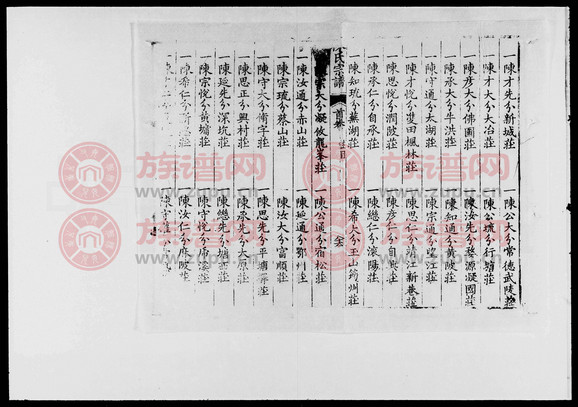 一陳才先分新城莊
一陳公大分常德武陵莊
一陳才大分大冶莊
一陳公珫分行
一陳彥大分佛圖莊
一陳汝先分婺源凝國莊
一陳承大分牛洪莊
一陳知通分黄陂莊
一陳守通分太湖莊
一陳宗通分望江莊
一陳才悅分雙田楓林莊
一陳思仁分江新巷莊
一陳思悅分澗陂莊
一陳彥仁分
一陳承仁分自承莊
一陳繼仁分滾陽莊
一陳知珫分蕪湖莊
一陳希大分玉山
氏宗譜
首卷
一陳宗大分凝攸龍峯莊
一陳公通分宿松莊
一陳汝通分赤山莊
一陳延通分鄂州莊
一陳宗珫分蔡山莊
一陳汝大分富順莊
一陳守大分脩字莊
一陳思先分平塘
一陳思正分興村莊
一陳承先分大原莊
一陳延先分深坑莊
一陳繼先分城西莊
一陳宗悅分黄墉莊
一陳守悅分
一陳希仁分
一陳汝仁分麻陂莊
族谱网
www.zupu.cn
族谱网
www.zupu.cn